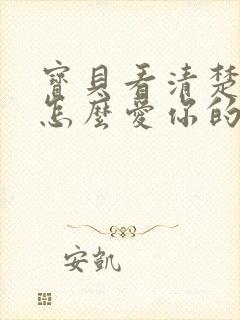 寶貝看清楚
怎麼愛你的
安凱